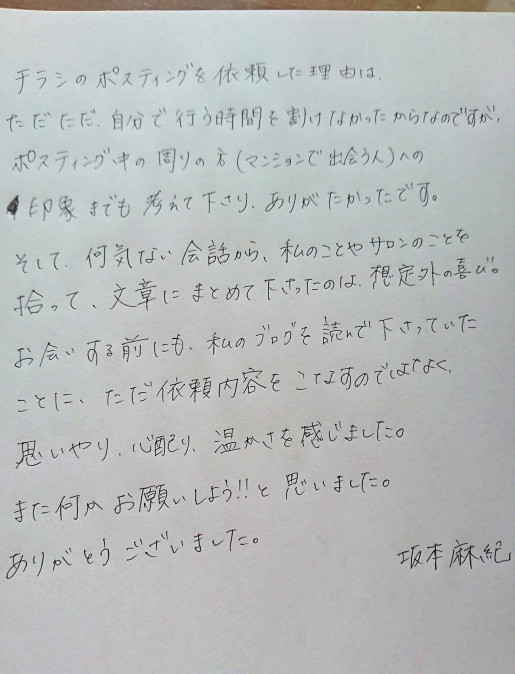 チラシのポスティングを依頼した理由は、
ただただ、自分で行う時間を割けなかったからなのですが、
ポスティング中の周りの方(マンションで出会う人)への
印象までも考えて下さり、ありがたかったです。
そして、何気ない会話から、私のことやサロンのことを
拾って、文章にまとめて下さったのは、想定外の喜び。
お会いする前にも、私のブログを読んで下さっていた
ことに、ただ依頼内容をこなすのではなく、
思いやり、心配り、温かさを感じました。
また何かお願いしよう!!と思いました。
ありがとうございました。
坂本麻紀